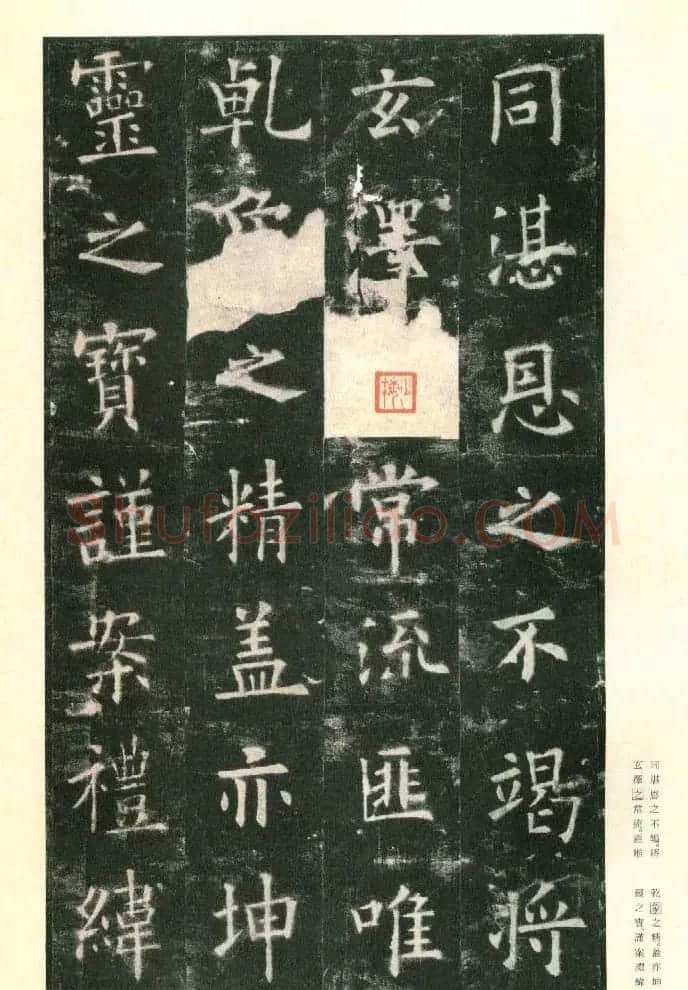 同湛恩之不竭將
玄澤常流匪唯
乹象之精盖亦坤
靈之寶謹案禮緯
同湛恩之不竭。將
玄澤之常流。匪唯
乾象之精。蓋亦坤
靈之寶。謹案禮緯
Shufaziliao.COM